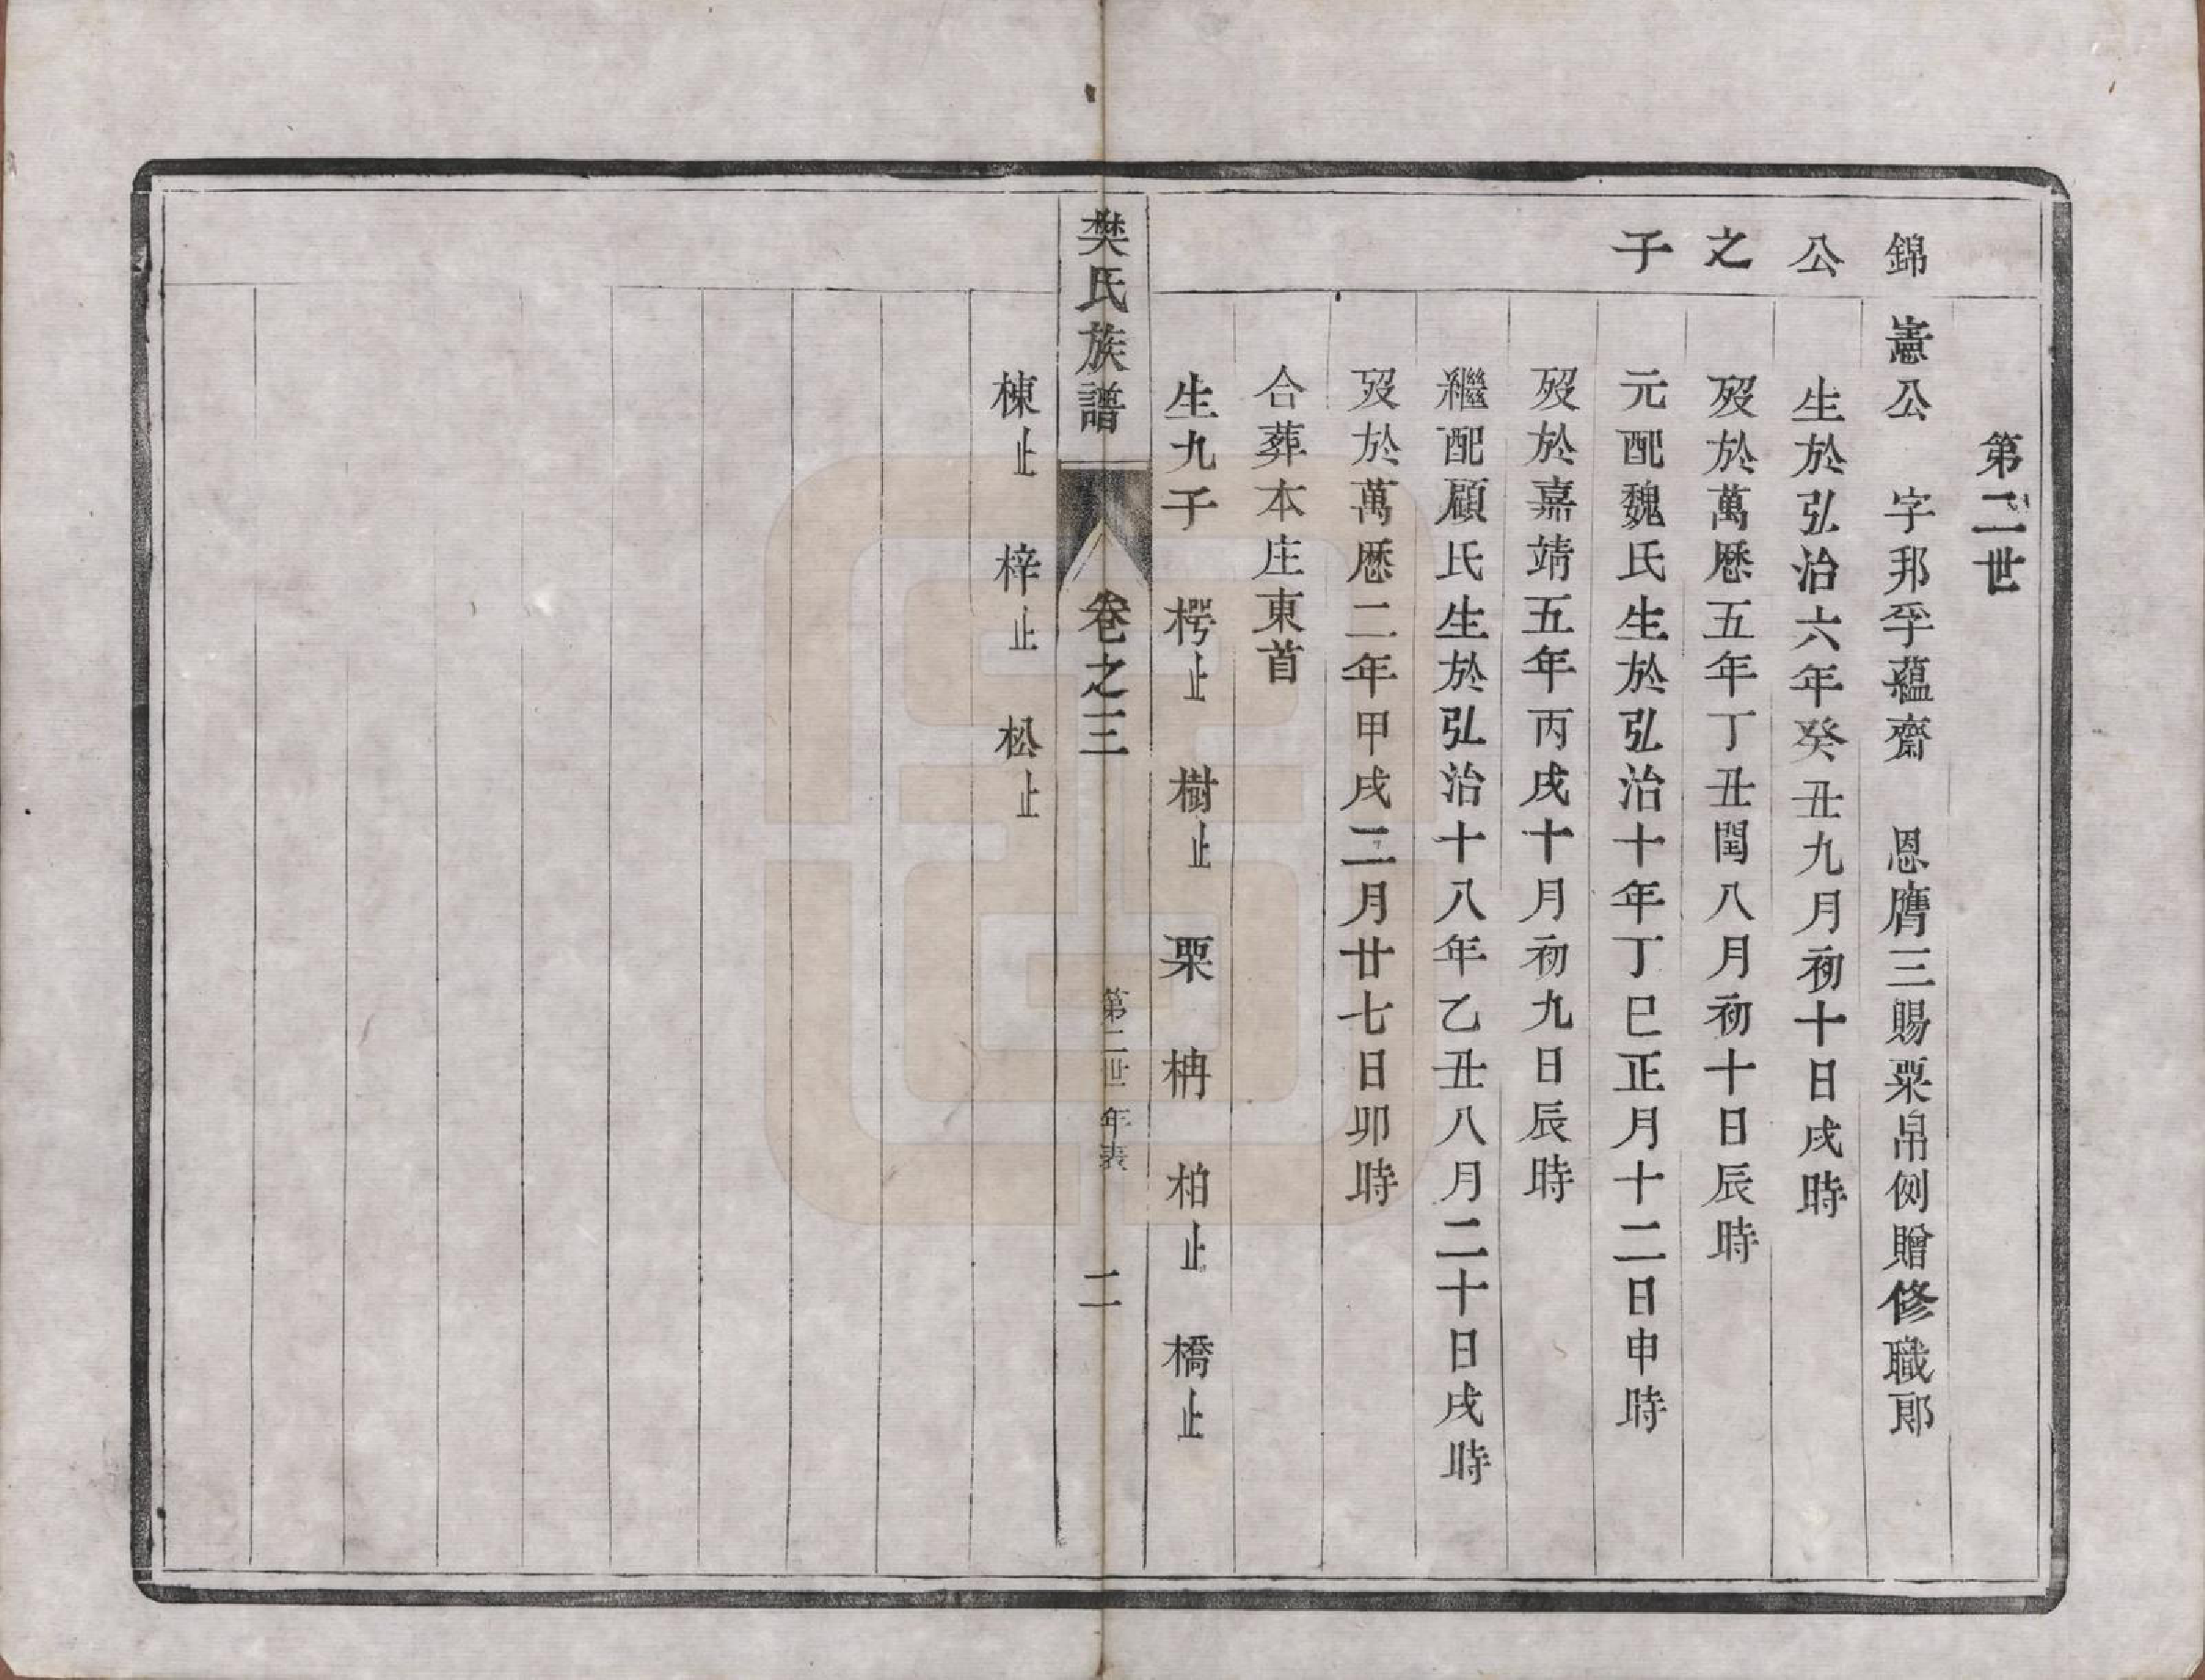 第二世
錦公之子
憲公　字邦孚蘊齋　恩膺三賜粟帛例贈修職郎
生於弘治六年癸丑九月初十日戌時
歿於萬曆五年丁丑閏八月初十日辰時
元配魏氏生於弘治十年丁巳正月十二日申時
歿於嘉靖五年丙戌十月初九日辰時
繼配顧氏生於弘治十八年乙丑八月二十日戌時
歿於萬曆二年甲戌二月廿七日卯時
合葬本庄東首
生九子　樗止　樹止　栗　柟　柏止　橋止
樊氏族譜　卷之三　第二世年表　二
棟止　梓止　松止